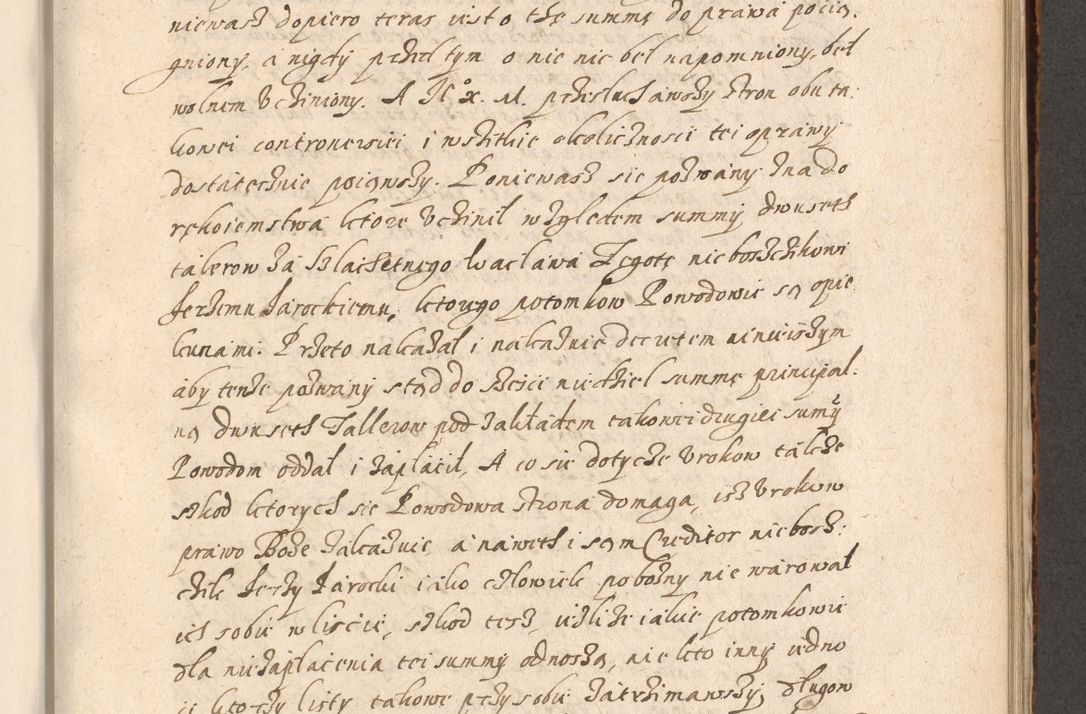 niewasz dopiero teras iest o the summę do prawa pocią.
gniony, a nigdy przed tym o nie nie beł napomniony, beł
wolnem uczÿniony. A J X. M. przesłuchawszy stron obu ta.
kowei controuersiei i wszitkie okolicznosci tei oprawy
dostatecznie poiąwszy. Ponieważ się pozwany zna do
rękoiemstwa ktore uczinił względem summÿ dwuseth
talerow za Szlachetnego Wacława Zegotę nieboszczikowi
Jerzemu Jarockiemu, ktorego potomkow Powodowie są opie
kunami. Przeto nakazał i nakazuie decretem ninieiszym
aby tenże pozwany stąd do sześci niedziel summę principal.
ną dwuseth Tallerow pod zakładem takowei drugiei sumÿ
Powodom oddał i zapłacił, A co sie dotycze urokow także
szkod ktorych się Powodowa strona domaga, isz urokow
prawo Boże zakazuie, a naweth i sąm Creditor niebosz:
czik Jerzy Jarocki iako człowiek pobożny nie warował
ich sobie w liscie, szkod tesz, ieżliże iakie potomkowie
dla niezapłacenia tei summÿ odnoszą, nie kto inny iedno
ci ktorzy listy takowe przy sobie zatrzimawszy, długow